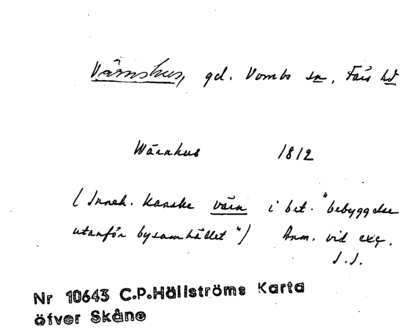 Värnshus, gd. Vombs sn, Färs hd
Wärnhus 1812
(Inneh. kanske värn i bet. "bebyggelse
utanför bysamhället") Anm. vid exc.
J.S.
Nr 10643 C.P.Hällströms Karta
öfver Skåne